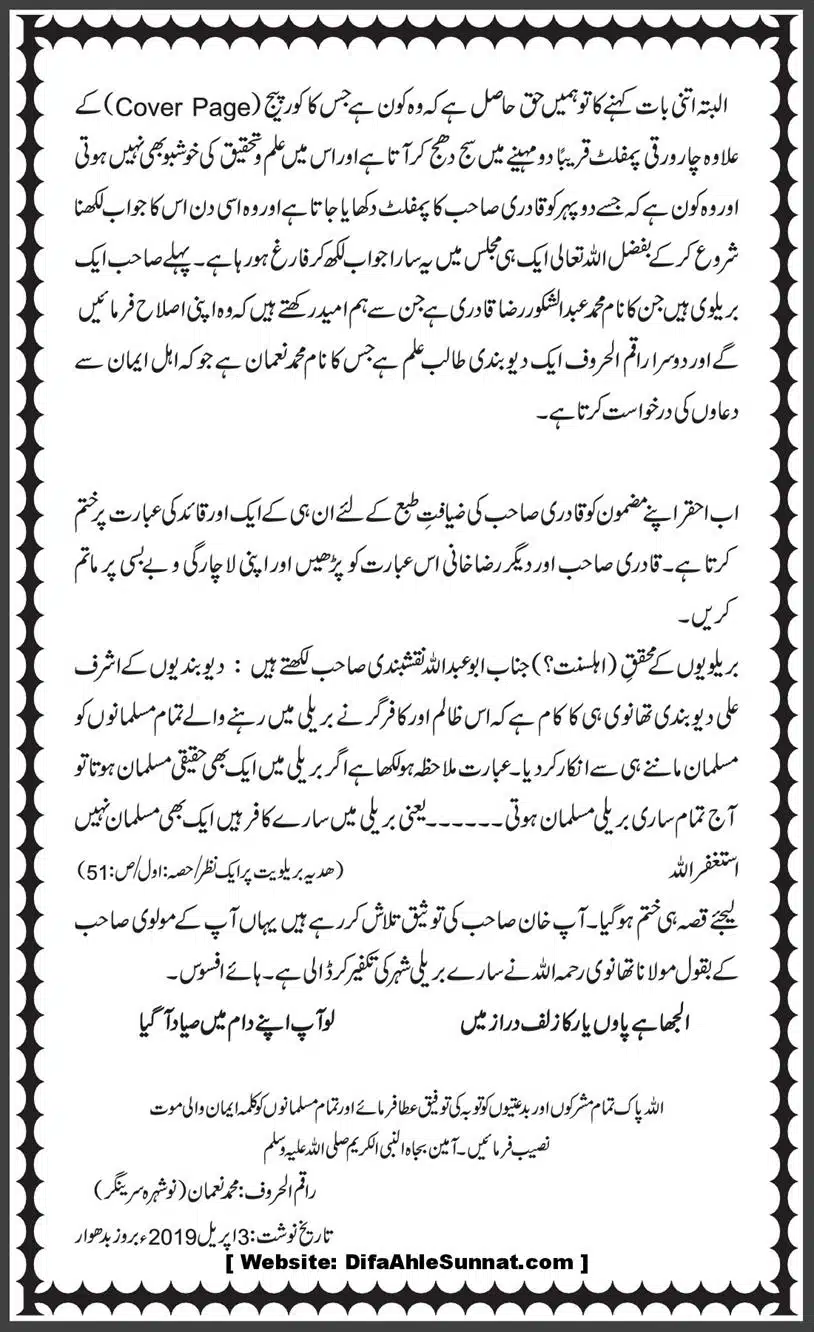 البتہ اتنی بات کہنے کا تو ہمیں حق حاصل ہے کہ وہ کون ہے جس کا کور پیج (Cover Page) کے
علاوہ چار ورقی پمفلٹ قریبًا دو مہینے میں سج دھج کر آتا ہے اور اس میں علم و تحقیق کی خوشبو بھی نہیں ہوتی
اور وہ کون ہے کہ جسے دو پہر کو قادری صاحب کا پمفلٹ دکھایا جاتا ہے اور وہ اسی دن اس کا جواب لکھنا
شروع کر کے بفضل اللہ تعالی ایک ہی مجلس میں یہ سارا جواب لکھ کر فارغ ہو رہا ہے۔ پہلے صاحب ایک
بریلوی ہیں جن کا نام محمد عبدالشکور رضا قادری ہے جن سے ہم امید رکھتے ہیں کہ وہ اپنی اصلاح فرمائیں
گے اور دوسرا راقم الحروف ایک دیوبندی طالب علم ہے جس کا نام محمد نعمان ہے جو کہ اہل ایمان سے
دعاوں کی درخواست کرتا ہے۔
اب احقر اپنے مضمون کو قادری صاحب کی ضیافتِ طبع کے لئے ان ہی کے ایک اور قائد کی عبارت پر ختم
کرتا ہے۔ قادری صاحب اور دیگر رضا خانی اس عبارت کو پڑھیں اور اپنی لاچارگی و بے بسی پر ماتم
کریں۔
بریلویوں کے محققِ (اہلسنت؟) جناب ابو عبداللہ نقشبندی صاحب لکھتے ہیں : دیوبندیوں کے اشرف
علی دیوبندی تھانوی ہی کا کام ہے کہ اس ظالم اور کافر گر نے بریلی میں رہنے والے تمام مسلمانوں کو
مسلمان ماننے ہی سے انکار کر دیا۔ عبارت ملاحظہ ہو لکھا ہے اگر بریلی میں ایک بھی حقیقی مسلمان ہوتا تو
آج تمام ساری بریلی مسلمان ہوتی ۔۔۔۔۔۔ یعنی بریلی میں سارے کافر ہیں ایک بھی مسلمان نہیں
استغفر اللہ (ھدیہ بریلویت پر ایک نظر/حصہ: اول/ص: 51)
لیجئے قصہ ہی ختم ہو گیا۔ آپ خان صاحب کی توثیق تلاش کر رہے ہیں یہاں آپ کے مولوی صاحب
کے بقول مولانا تھانوی رحمہ اللہ نے سارے بریلی شہر کی تکفیر کر ڈالی ہے۔ ہائے افسوس۔
الجھا ہے پاوں یار کا زلف دراز میں لو آپ اپنے دام میں صیاد آ گیا
اللہ پاک تمام مشرکوں اور بدعتیوں کو توبہ کی توفیق عطا فرمائے اور تمام مسلمانوں کو کلمہ ایمان والی موت
نصیب فرمائیں۔ آمین بجاہ النبی الکریم صلی اللہ علیہ وسلم
راقم الحروف: محمد نعمان (نوشہرہ سرینگر)
تاریخ نوشت: 3 اپریل 2019ء بروز بدھوار
[ Website: DifaAhleSunnat.com ]